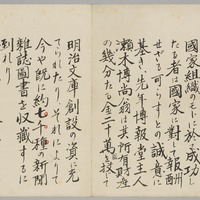 國家組織のもとに於て成功し
たる者は國家に對して報酬
せざる可らずとの誠意に
基き、先年博報堂主人
瀬木博尚翁は其所有財産
の幾分たる金二十萬を投て
明治文庫創設の資に充
てられたり、それによりて
今や既に約七千種の新聞
雜誌圖書を収藏するに
到れり